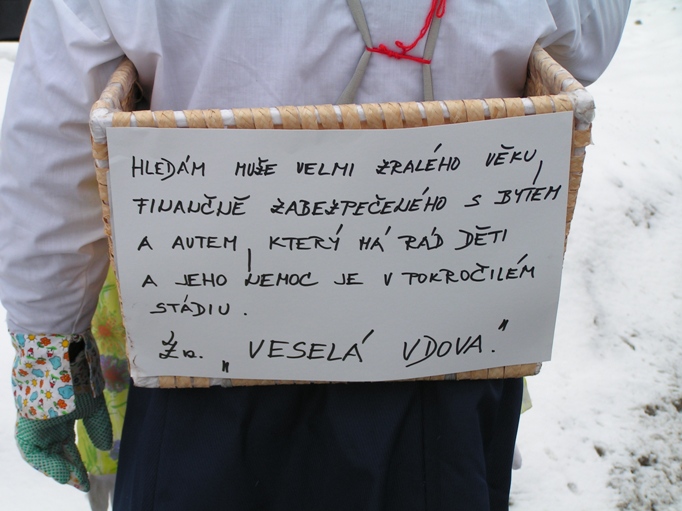 HLEDÁM MUŽE VELMI ZRALÉHO VĚKU,
FINANČNĚ ZABEZPEČENÉHO S BYTEM
A AUTEM, KTERÝ MÁ RÁD DĚTI
A JEHO NEMOC JE V POKROČILÉM
STÁDIU.
Zn. „VESELÁ VDOVA."